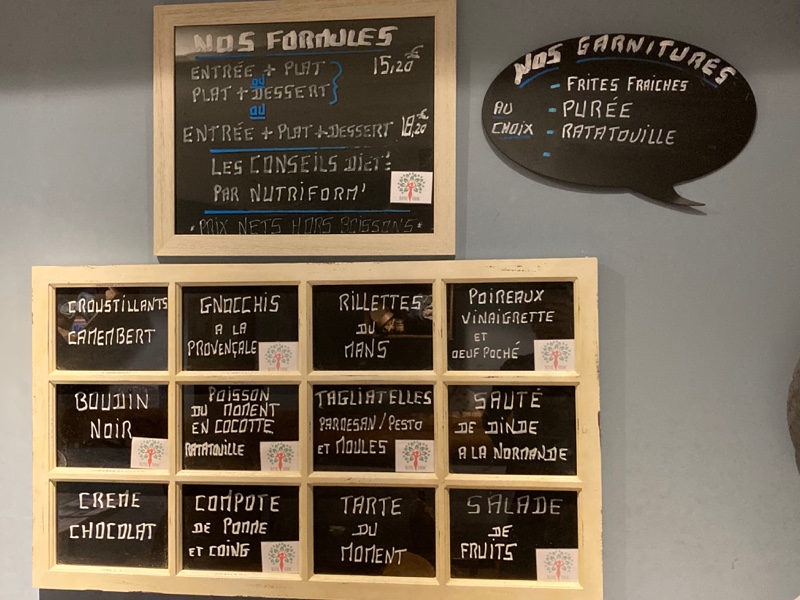 NOS FORMULES
ENTRÉE + PLAT 15,20€
ou
PLAT + DESSERT
ou
ENTRÉE + PLAT + DESSERT 18,20€
LES CONSEILS DIET!
PAR NUTRIFORM'
PRIX NETS HORS BOISSONS
NOS GARNITURES
AU CHOIX
- FRITES FRAICHES
- PURÉE
- RATATOUILLE
-
CROUSTILLANTS
CAMEMBERT
GNOCCHIS
A LA
PROVENÇALE
RILLETTES
DU
MANS
POIREAUX
VINAIGRETTE
ET
OEUF POCHÉ
BOUDIN
NOIR
POISSON
DU MOMENT
EN COCOTTE
RATATOUILLE
TAGLIATELLES
PARMESAN / PESTO
ET MOULES
SAUTÉ
DE DINDE
A LA NORMANDE
CREME
CHOCOLAT
COMPOTE
DE POMME
ET COING
TARTE
DU
MOMENT
SALADE
DE
FRUITS